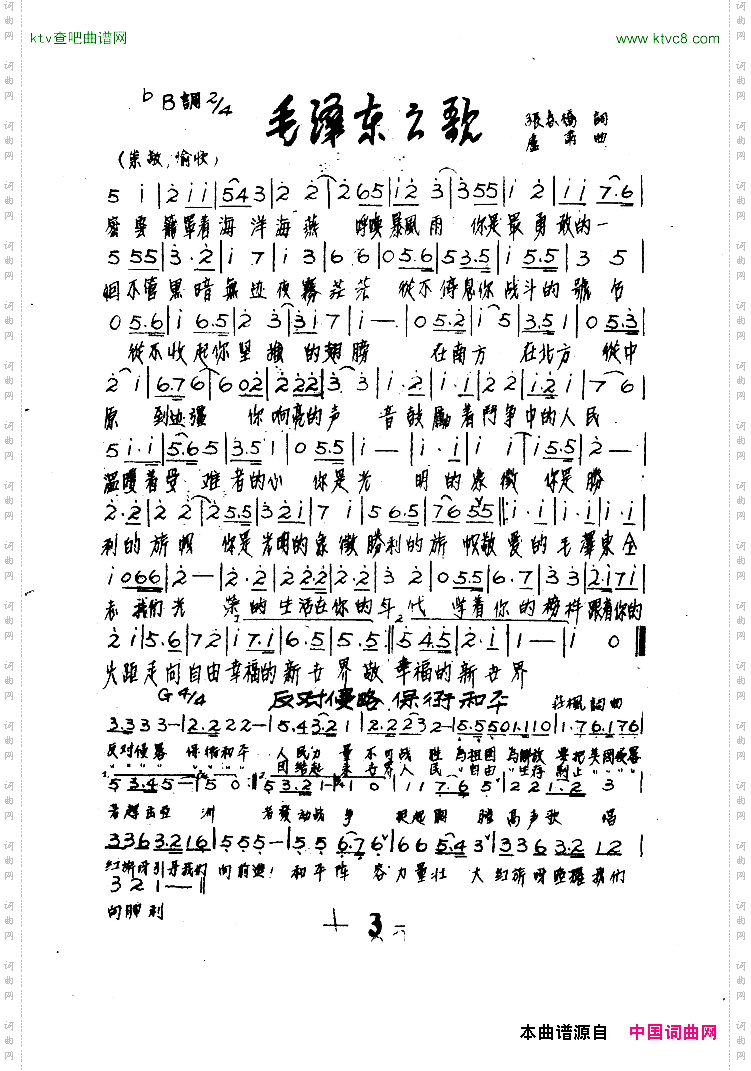 ktv查吧曲谱网 www.ktvc8.com
♭B調 2/4 毛泽东之歌 張春橋 詞
盧肅 曲
(崇敬,愉快)
5 i|2 i i|5 4 3|2 2|2 6 5|i 2 3|3 5 5|i 2|i i|7. 6|
密雲籠罩着海洋海燕 呼喚暴風雨 你是最勇敢的一
5 5 5|3. 2|i 7|i 3|6 6|0 5. 6|5 3. 5|i 5. 5|3 5
個不管黑暗無边夜霧茫茫 從不停息你战斗的號角
0 5. 6|i 6. 5|2 3|3 i 7|i —|0 5. 2|i 5|3. 5 1|0 5. 3|
從不收起你堅強的翅膀 在南方 在北方 從中
2 i|6. 7 6|6 0 2|2 2 2|3 3|i. 2|i i|2 2|i. 2 i|7 6
原 到边疆 你响亮的声音鼓勵着鬥争中的人民
5 i. i|5. 6 5|3. 5 1|0 5. 5|i —|i. i|i i|i 5. 5|2 —|
溫暖着受难者的心 你是光明的象徵 你是勝
2. 2|2 2|2 5. 5|3 2 i|7 i|5 6. 5|7 6 5 5|i. i|i. i|i. i|
利的旗幟 你是光明的象徵勝利的旗幟敬愛的毛澤東仝
i 0 6 6|2 —|2. 2|2 2. 2|2. 2|3 2|0 5 5|6. 7|3 3|2. i 7 i|
志我們光榮的生活在你的年代 学着你的榜样跟着你的
2 i|5. 6|7 2|i 7. i|6. 5|5. 5|5 4 5|2. i|1 —|i 0
大距走向自由幸福的新世界敬 幸福的新世界
G 4/4 反对侵略保衛和平 莊楓詞曲
3. 3 3 3 —|2. 2 2 2 —|5. 4 3 2 1|2. 2 2 3 2 —|5. 5 5 0 1. 1 1 0|1. 7 6. 1 7 6|
反对侵畧 保衛和平 人民力量不可战胜 為祖国 為解放 要把美國侵畧
〃 〃 〃 〃 〃 〃 〃 〃 团結起来世界人民 〃自由〃 〃生存 制止〃〃〃〃
5 3. 4 5 —|5 0 5 3. 2 1 —|1 0|1 1 7 6 5|2 2 1. 2 3
者趕出亞洲 者發动战争 挺起胸膛高声歌唱
3 3 6 3. 2 1 6|5 5 5 —|5 5 6. 7 6|6 6 5 4 5|3 3 6 3. 2 1 2|
红旗呀引导我們 向前進! 和平阵容力量壮 大红旗呀照耀我们
3 2 1 —
向勝利
3
本曲谱源自 中国词曲网
词曲网